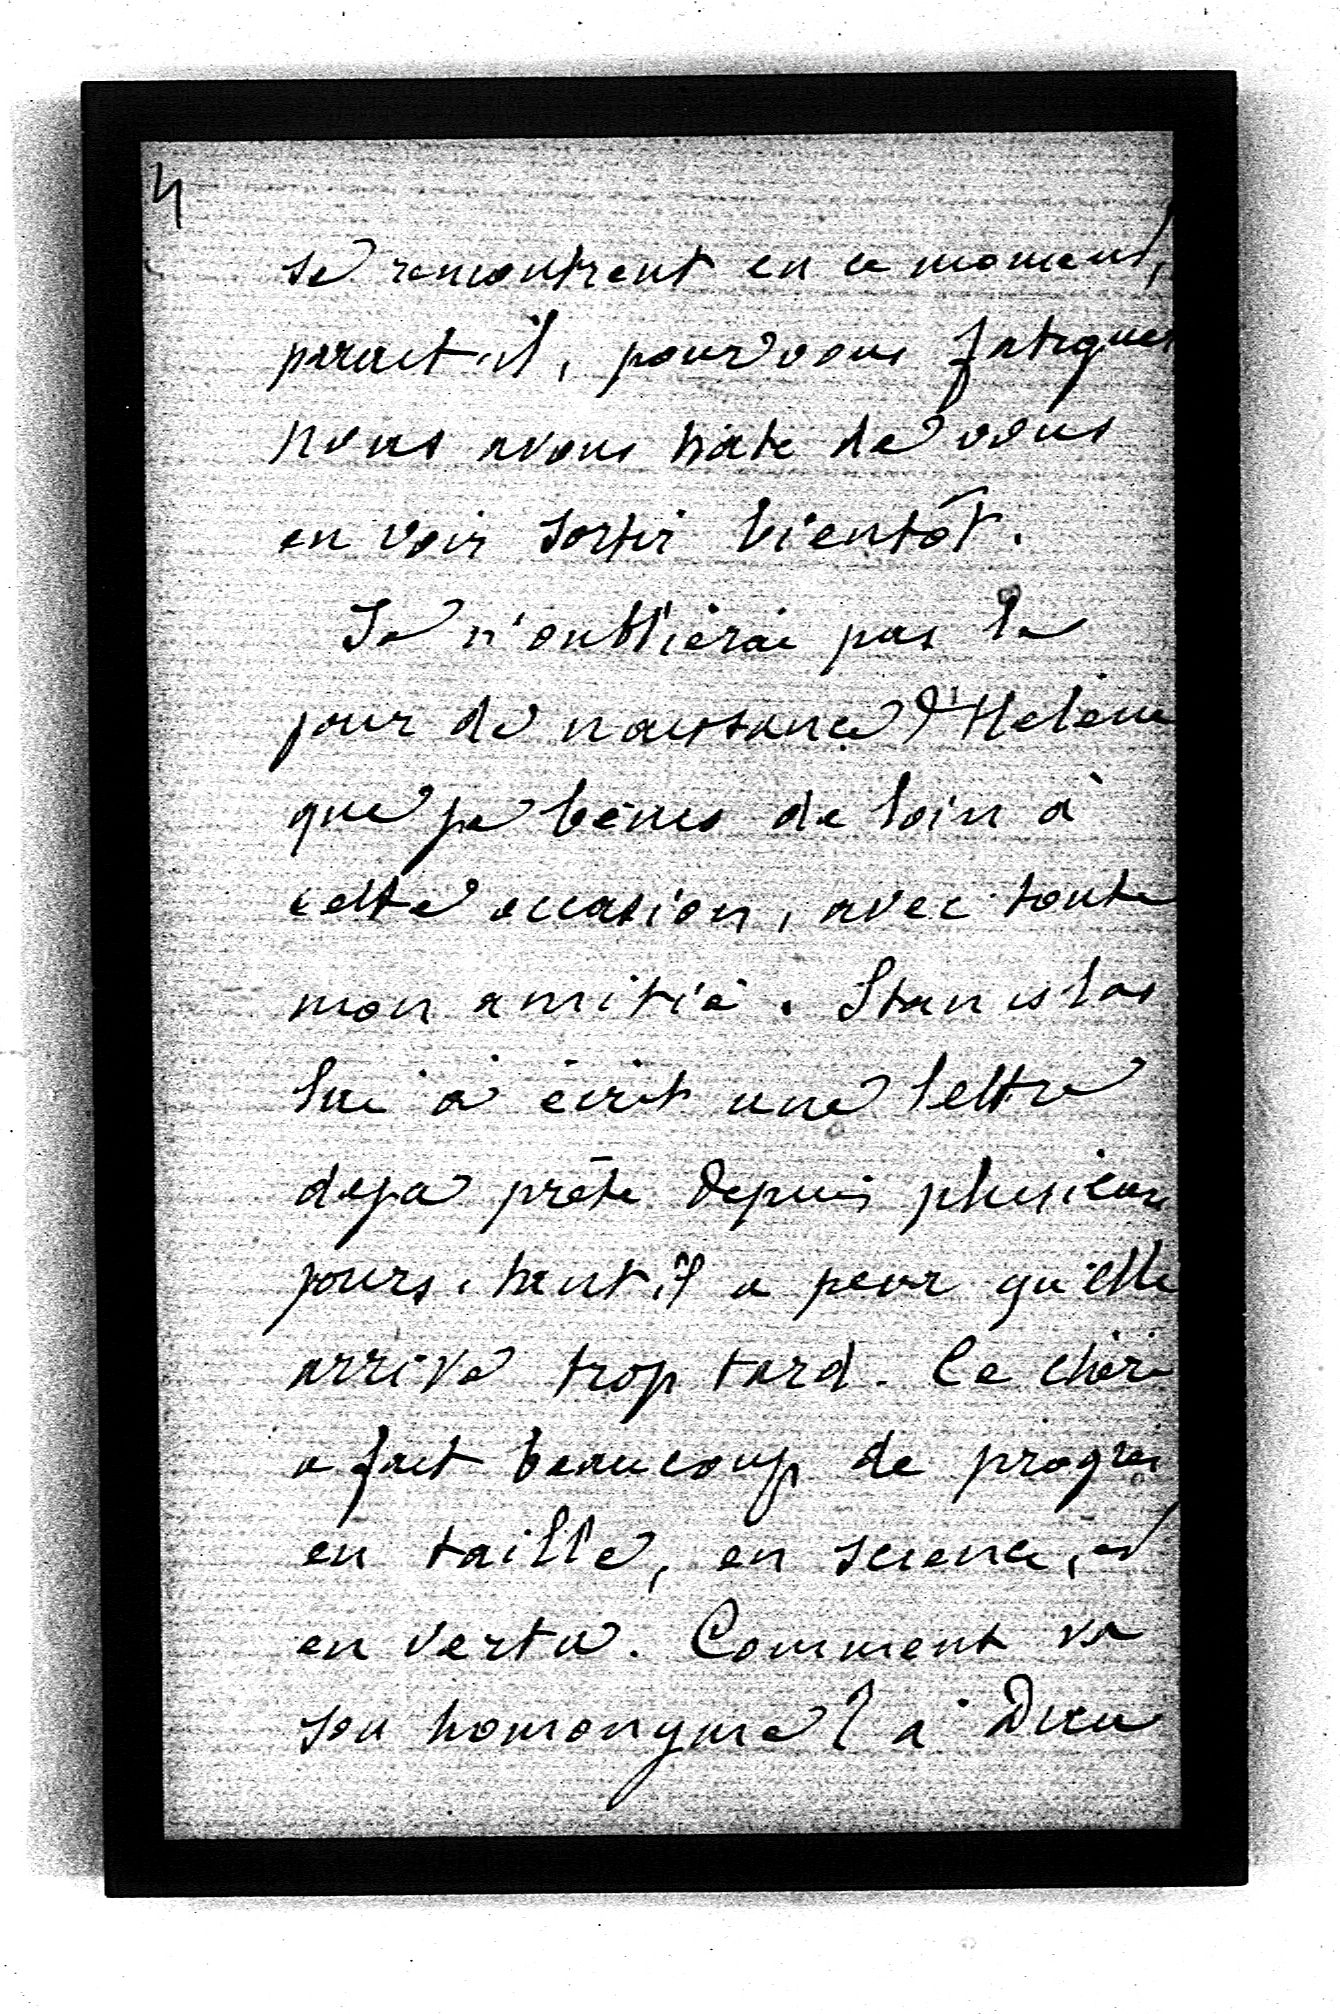 4
se rencontrent en ce moment,
parait-il, pour vous fatiguer
nous avons hâte de vous
en voir sortir bientôt.
Je n'oublierai pas le
jour de naissance d'Helène
que je bénis de loin à
cette occasion, avec toute
mon amitié. Stanislas
lui à écrit une lettre
deja prête depuis plusieurs
jours, tant il a peur qu'elle
arrive trop tard. Ce chéri
a fait beaucoup de progrès
en taille, en science, et
en vertu. Comment va
son homonyme? à Dieu